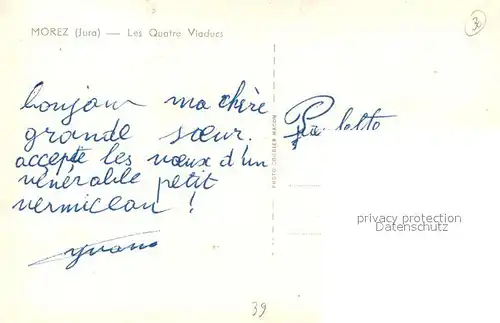 MOREZ (Jura) — Les Quatre Viaducs
38
bonjour ma chère
grande sœur.
accepte les vœux d'un
vénérable petit
vermiceau !
yvano
PHOTO COURIER MACON
privacy protection
Datenschutz
39